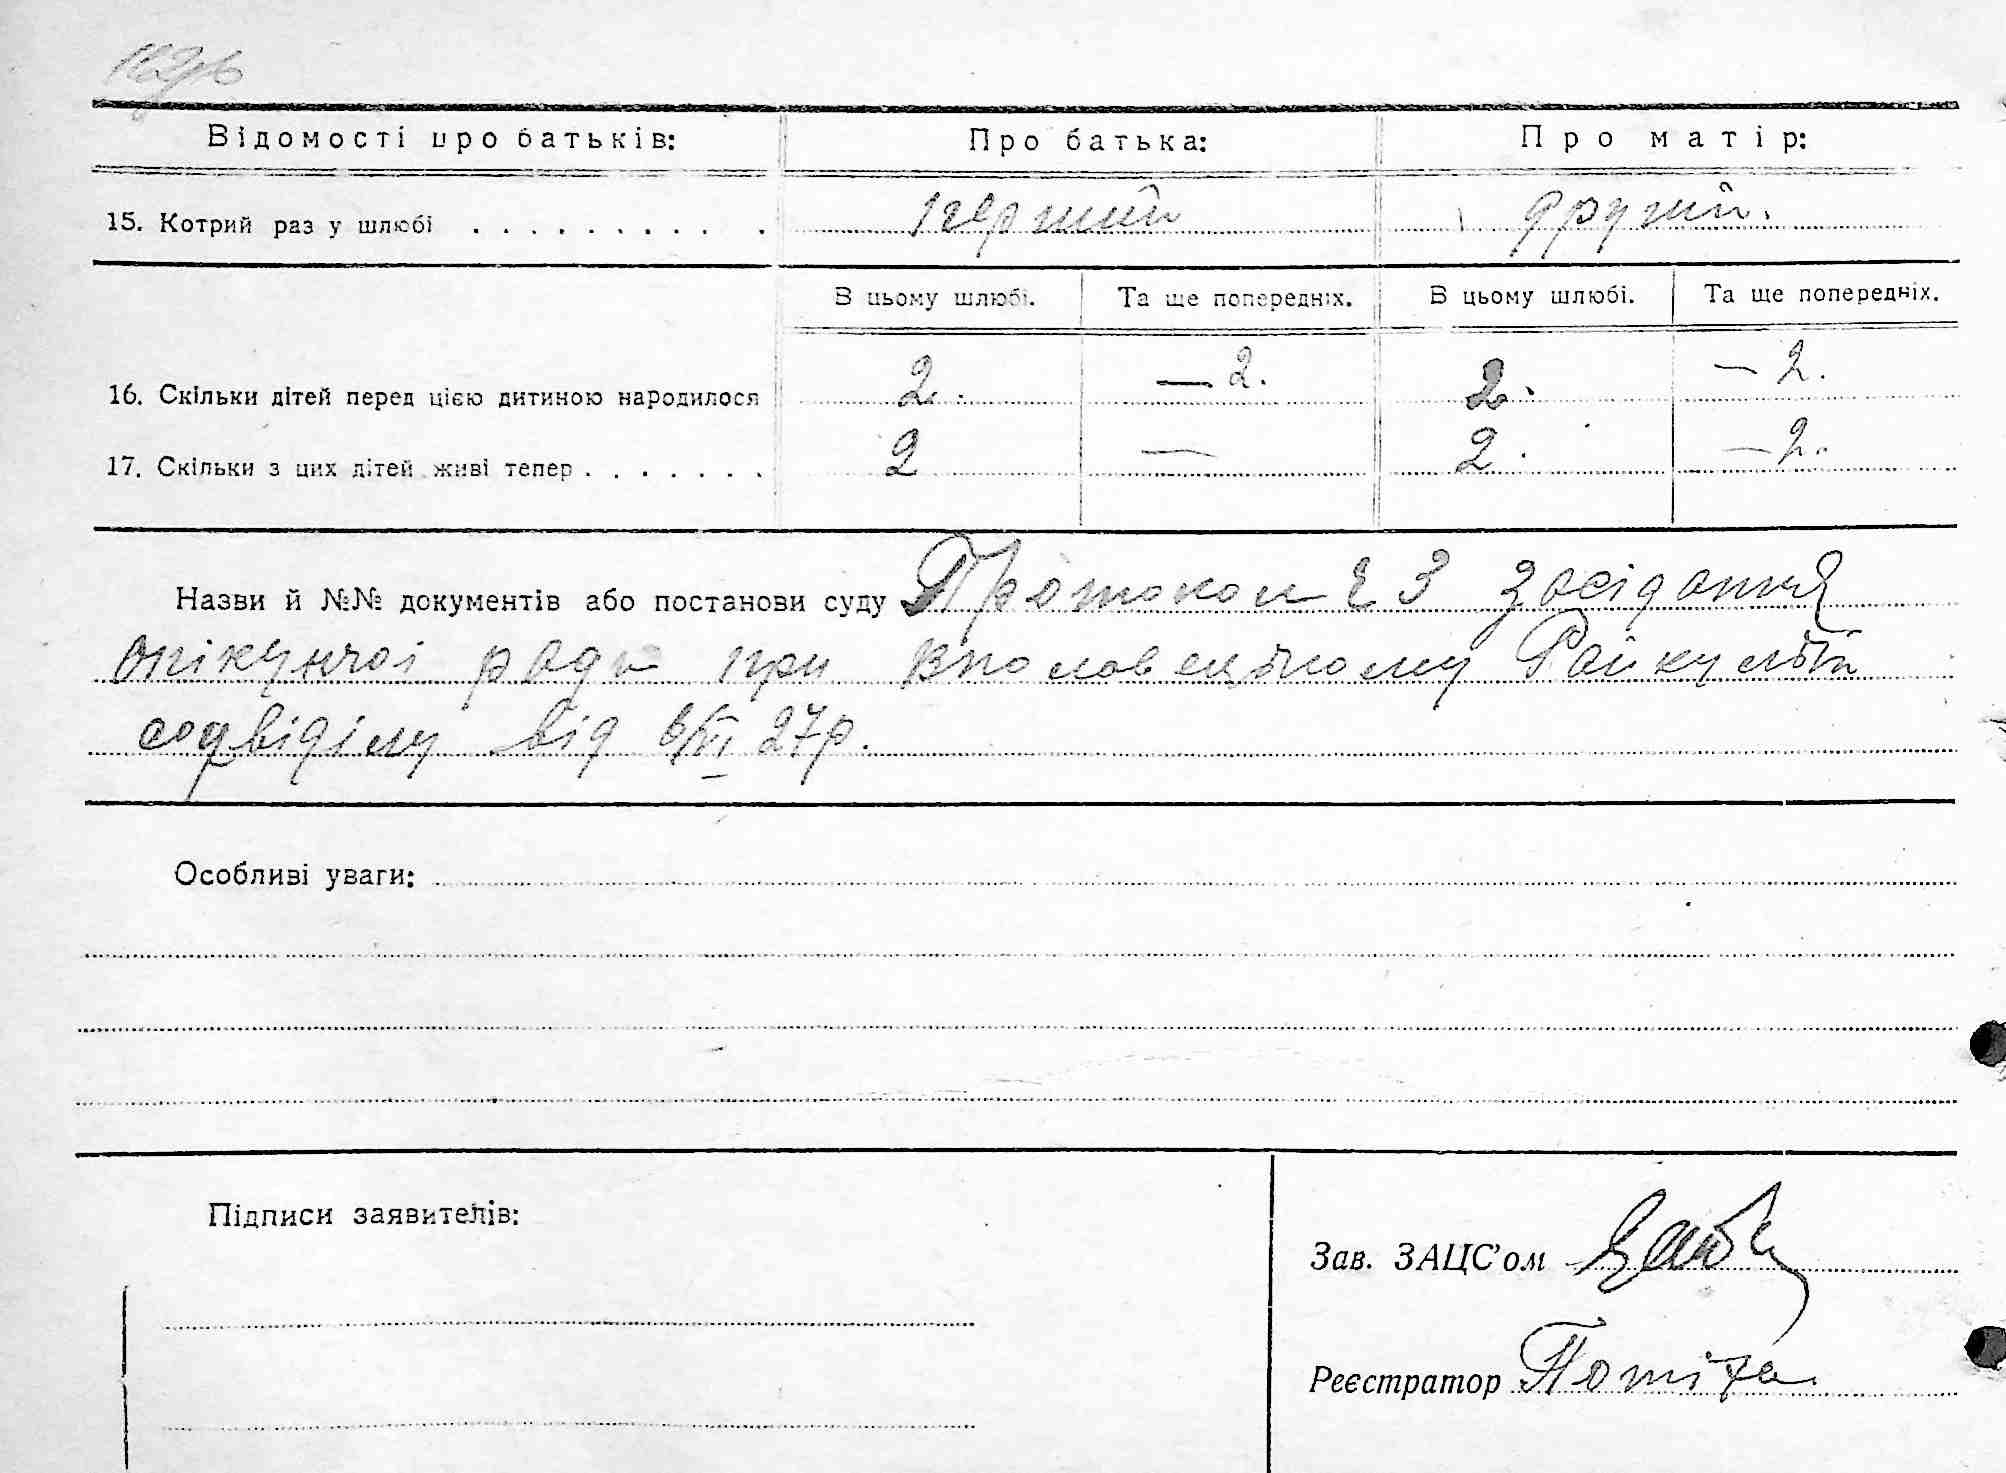 Відомості про батьків: Про батька: Про матір:
15. Котрий раз у шлюбі . . . . . . . . . . перший другий.
В цьому шлюбі. Та ще попередніх. В цьому шлюбі. Та ще попередніх.
16. Скільки дітей перед цією дитиною народилося 2. — 2. 2. — 2.
17. Скільки з цих дітей живі тепер . . . . . . . 2 — 2. — 2.
Назви й №№ документів або постанови суду Протокол ч 3 засідання
опікунчої ради при
соцвіділу від 6/VI 27р.
Особливі уваги:
Підписи заявителів:
Зав. ЗАЦС'ом
Реєстратор